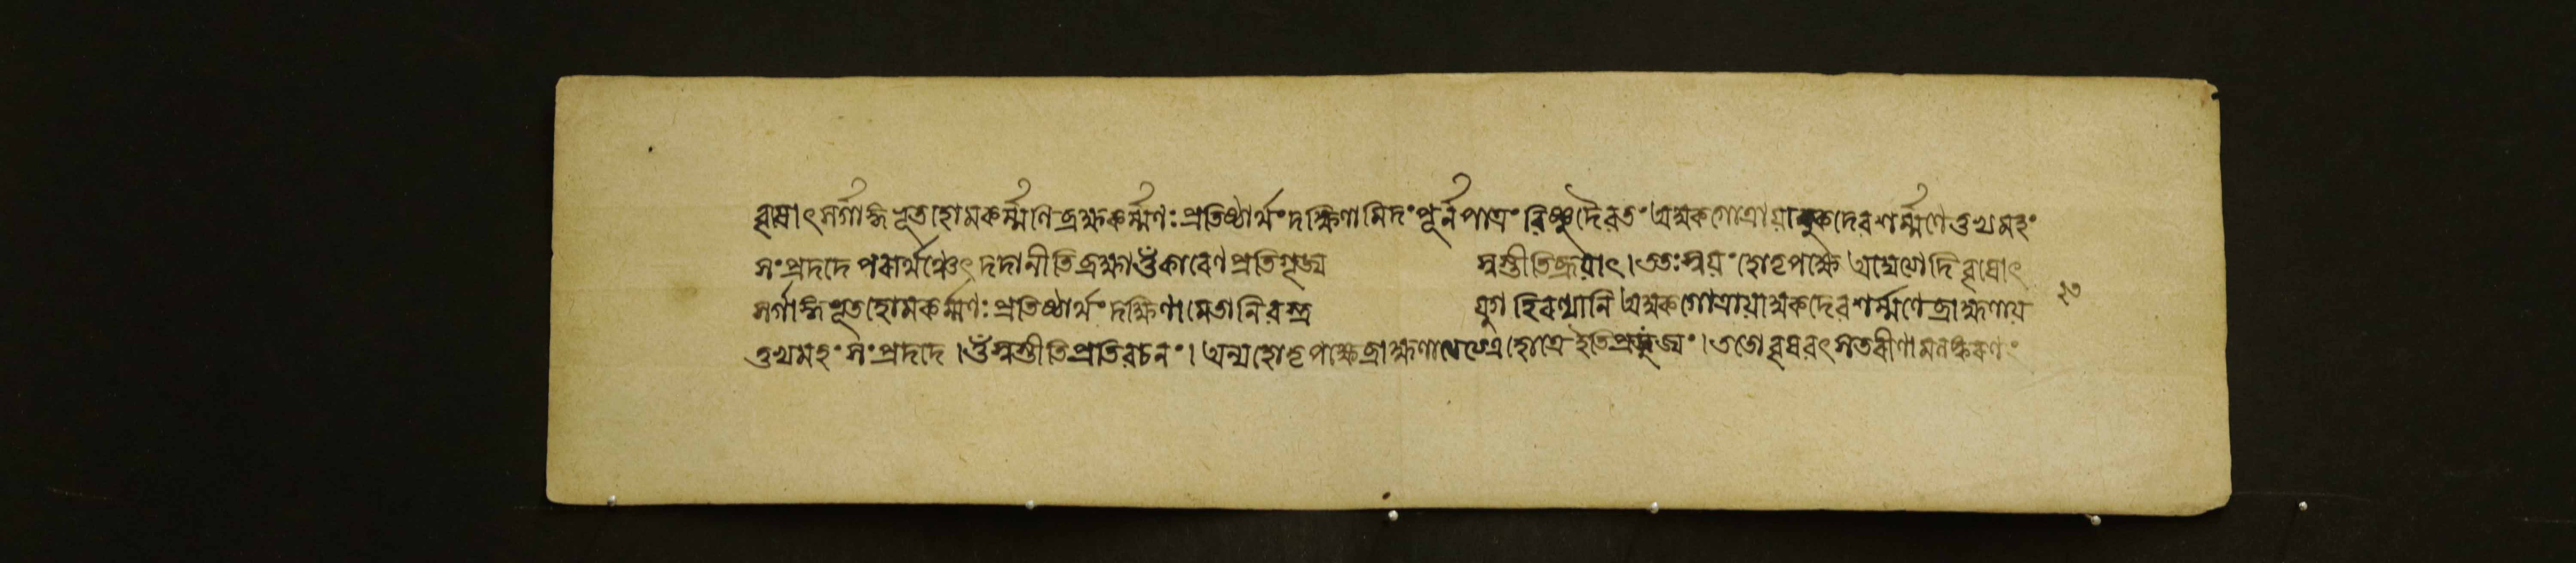 বৃষোৎসর্গাঙ্গিভূতহোমকর্ম্মণি ব্রহ্মকর্ম্মণঃ প্রতিষ্ঠার্থং দক্ষিণামিদং পূর্নপাত্রং বিষ্ণুদৈবতং অমুকগোত্রায়ামুকদেবশর্ম্মণে তুভ্যমহং
সংপ্রদদে পরার্থঞ্চেৎ দদানীতি ব্রহ্মা ওঁকারেণ প্রতিগৃহ্য স্বস্তীতি ব্রূয়াৎ । ততঃ স্বয়ং হোতৃপক্ষে অদ্যেত্যাদি বৃষোৎ
সর্গাঙ্গিভূতহোমকর্ম্মণঃ প্রতিষ্ঠার্থং দক্ষিণামেতানি বস্ত্র যুগহিরণ্যানি অমুকগোত্রায়ামুকদেবশর্ম্মণে ব্রাহ্মণায়
২৩
তুভ্যমহং সংপ্রদদে । ওঁ স্বস্তীতি প্রতিবচনং । অন্যহোতৃপক্ষে ব্রাহ্মণায়েত্যত্র হোত্রে ইতি প্রযুজ্য । ততো বৃষবৎসতরীণামলঙ্করণং